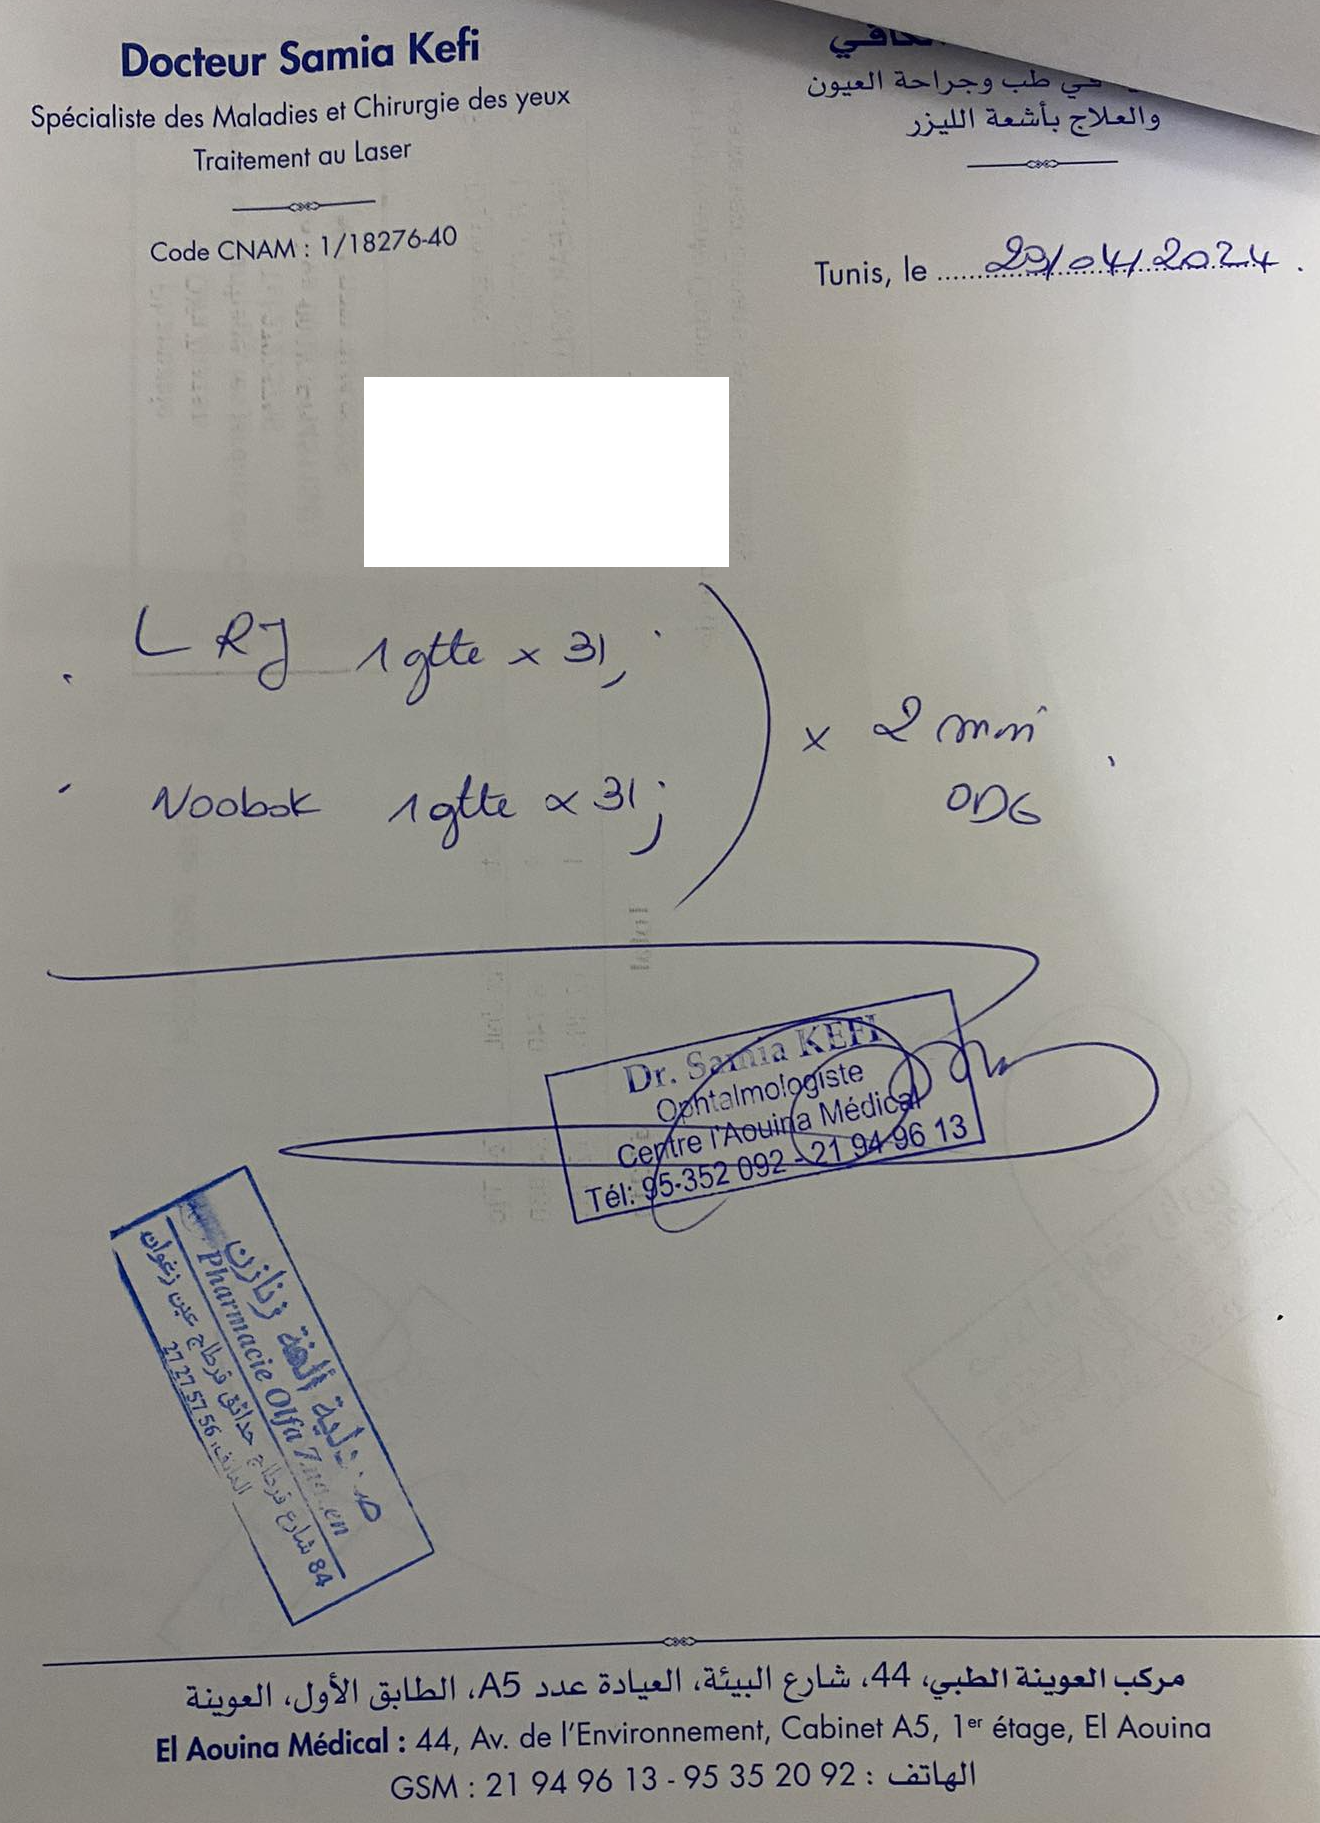 Docteur Samia Kefi
Spécialiste des Maladies et Chirurgie des yeux
Traitement au Laser
Code CNAM : 1/18276-40
في طب وجراحة العيون
والعلاج بأشعة الليزر
Tunis, le 29/04/2024
LRJ 1 gtte x 3/j
Noobak 1 gtte x 3/j
x 2 mois
ODG
Dr. Samia KEFI
Ophtalmologiste
Centre l'Aouina Médical
Tél: 95-352 092 - 21 94 96 13
صيدلية ألفة زنازن
Pharmacie Olfa
84 شارع قرطاج حدائق قرطاج عين زغوان
الهاتف: 27 27 57 56
مركب العوينة الطبي، 44، شارع البيئة، العيادة عدد A5، الطابق الأول، العوينة
El Aouina Médical : 44, Av. de l'Environnement, Cabinet A5, 1er étage, El Aouina
GSM : 21 94 96 13 - 95 35 20 92 : الهاتف